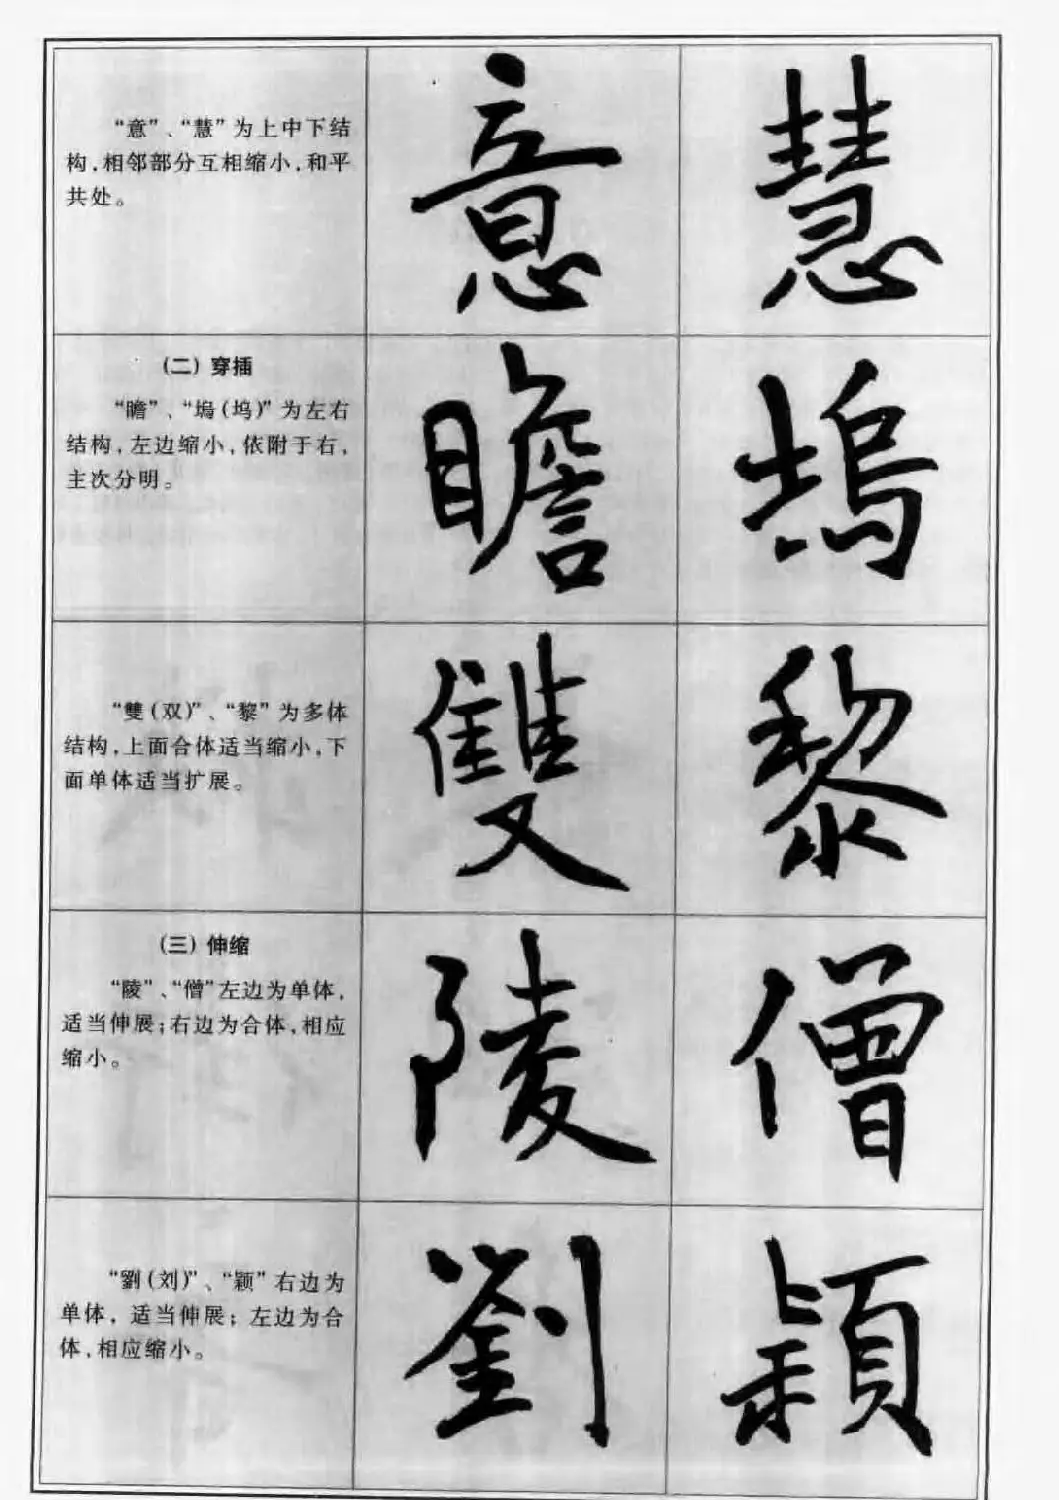 “意”、“慧”为上中下结
构,相邻部分互相缩小,和平
共处。
意
慧
(二) 穿插
“瞻”、“塢(坞)”为左右
结构,左边缩小,依附于右,
主次分明。
瞻
塢
“雙(双)”、“黎”为多体
结构,上面合体适当缩小,下
面单体适当扩展。
雙
黎
(三) 伸缩
“陵”、“僧”左边为单体,
适当伸展;右边为合体,相应
缩小。
陵
僧
“劉(刘)”、“颖”右边为
单体,适当伸展;左边为合
体,相应缩小。
劉
頴